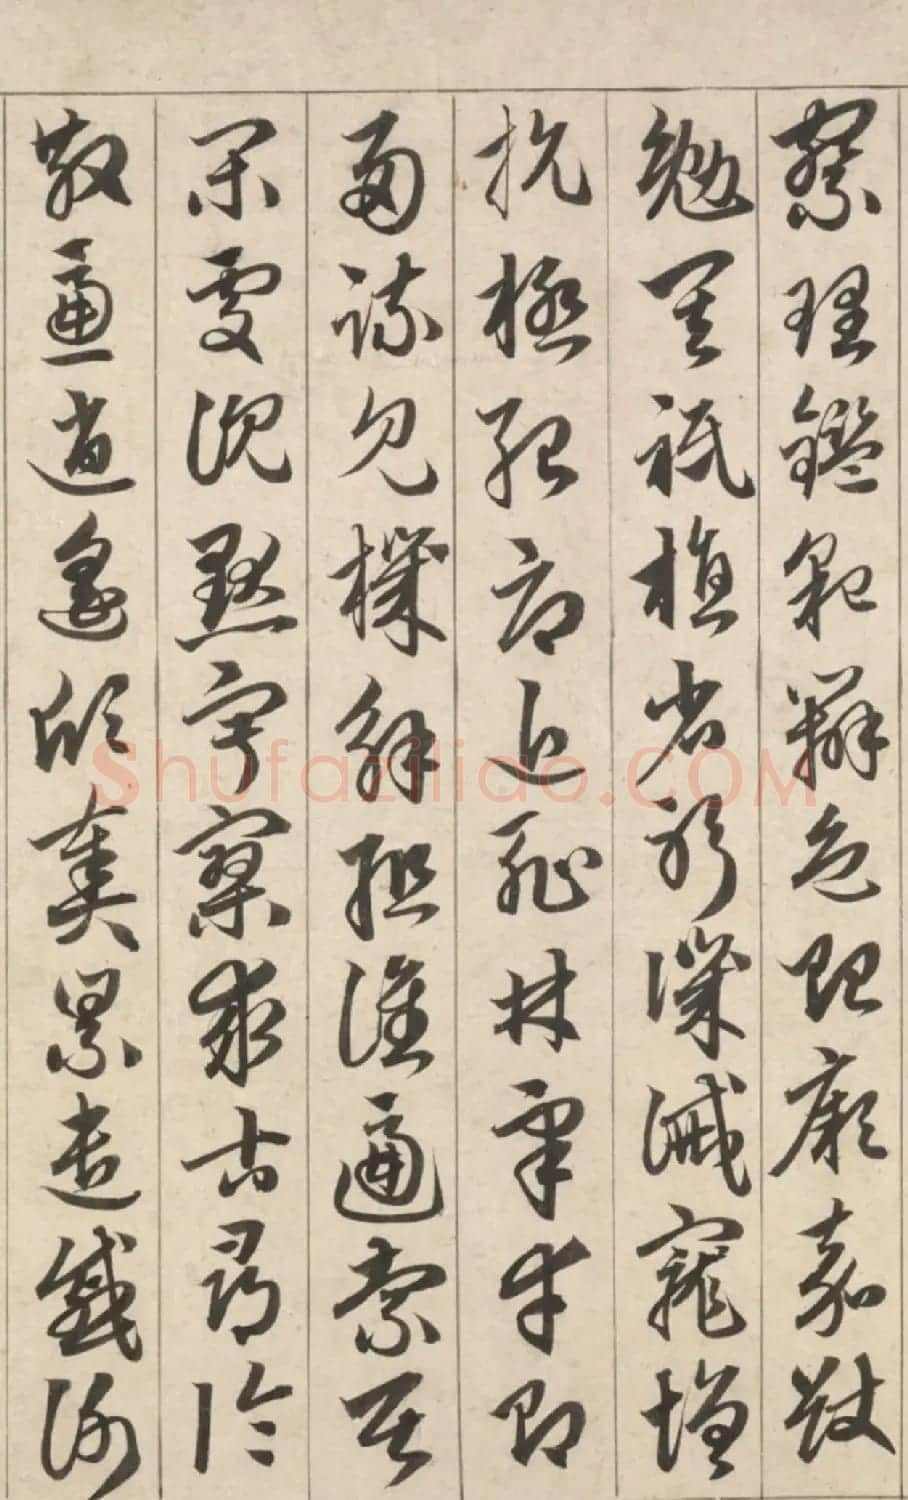 察理鑑貌辯色貽厥嘉猷
勉其祗植省躬譏誡寵增
抗極殆辱近恥林皋幸即
兩疏見機解組誰逼索居
閑處沉默寂寥求古尋論
散慮逍遙欣奏累遣慼謝
Shufaziliao.COM